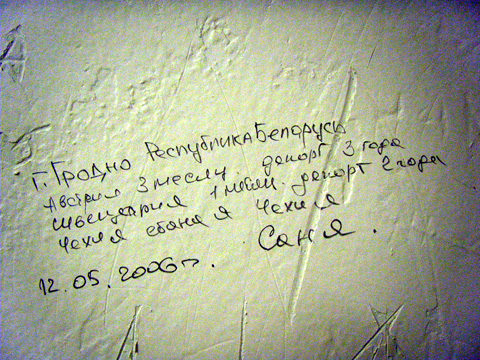 г. Гродно Республика Беларусь
Австрия 3 месяц. депорт 3 года
швейцария 1 месяц. депорт 2 года
Чехия ебаная Чехия
Саня.
12.05.2006г.